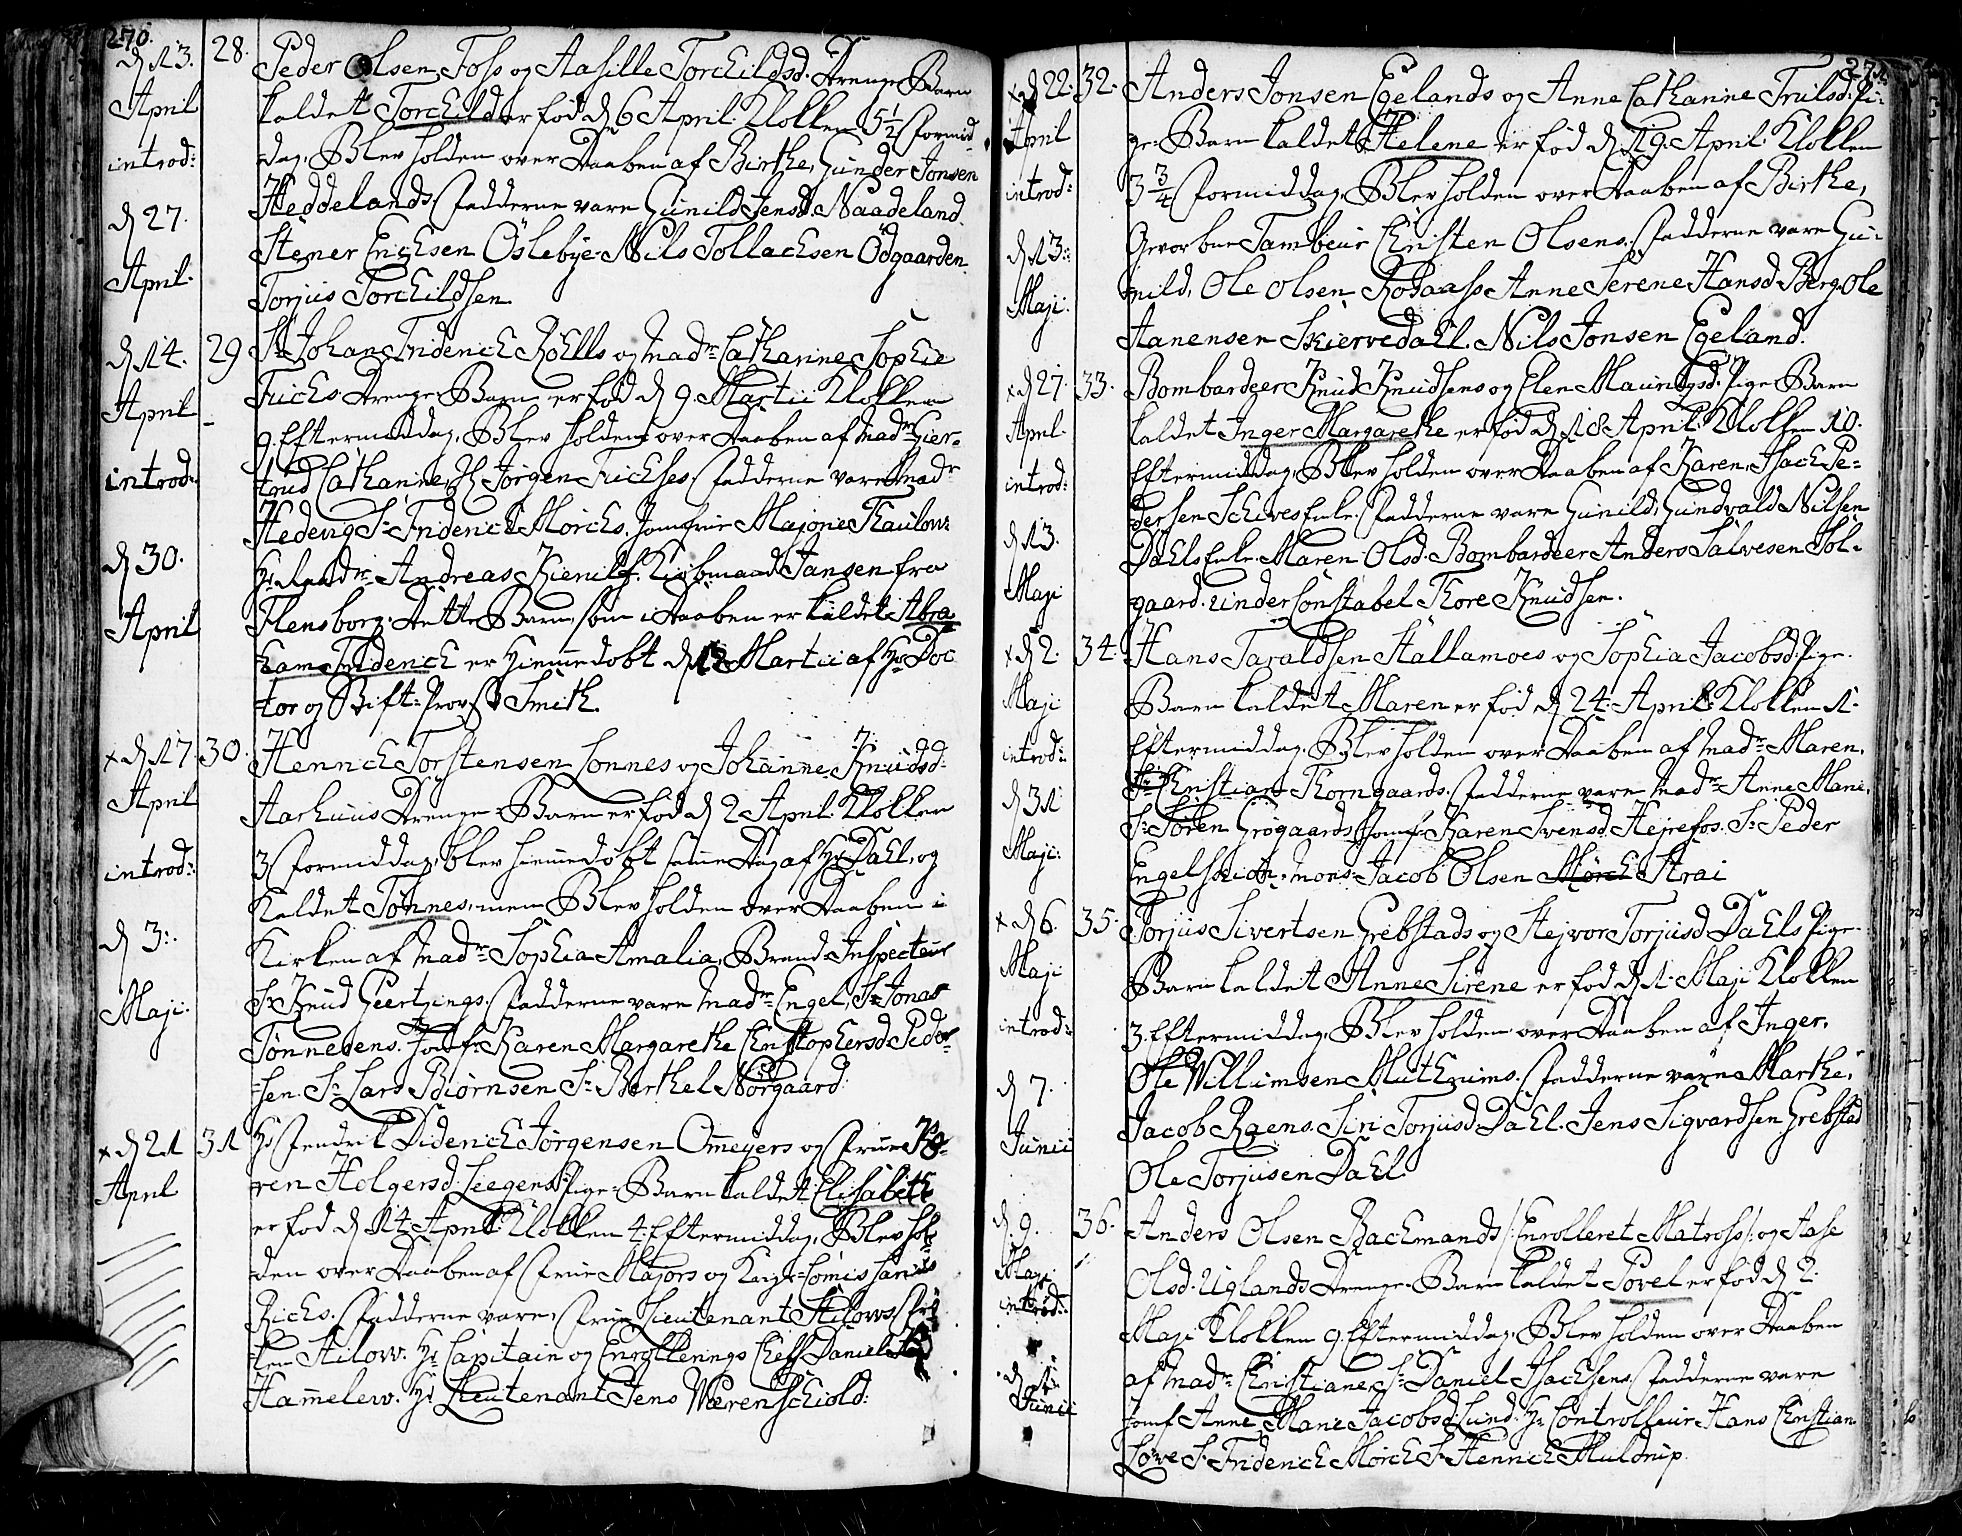 270.
d 13. April introd: d 27. April.
28. Peder Olsen Foss og Aasille Torchildsd. Drenge Barn
kaldet Torchild er fød d 6 April Klokken 5 1/2 Formid-
dag, Blev holden over Daaben af Birthe, Gunder Jonsen
Heddelands. Fadderne vare Gunild Jensd. Naadeland
Stener Erichsen Öslebÿe. Nils Tollachsen Ödgaarden.
Torjus Torchildsen.
d 14. April introd: d 30. April
29 Sr Johan Friderich Röells og Madme Catharine Sophie
Fricks Drenge Barn er fød d 9 Martii Klokken
9. Eftermiddag, Blev holden over Daaben af Madme Gier-
trud Catharine, Jørgen Frickses. Fadderne vare Madme
Hedevig Sr Friderich Mörchs. Jomfrue Majorie Thaulow:
Andreas Kierulf. Kiøbmand Jansen fra
Flensborg. Dette Barn, som i Daaben er kaldet Abra-
ham Friderich er hiemmedøbt d Martii af Hr Doc
tor og Stift-Provst Smith.
x d 17 April introd: d 3. Maji.
30. Henrich Torstensen Sonnes og Johanne Knudsd.
Aarhuus Drenge Barn er fød d 2 April Klokken
3 Formiddag, blev hiemmedøbt samme Dag af Hr Dahl, og
kaldet Tønnes, men Blev holden over Daaben i
Kirken af Madme Sophia Amalia, Brand-Inspecteur
Sr Knud Geertzings. Fadderne vare Madme Engel, Sr Jonas
Tønnesens. Jomfr Karen Margarethe Christophersd. Peder-
sen. Sr Lars Biørnsen Sr Berthel Nörgaard.
x d 21 April
31 Hr Fendrik Diderich Jörgensen Omeyers og Frue Ka-
ren Holgersd. Seegens Pige-Barn kaldet Elisabeth
er fød d 14 April Klokken 4. Eftermiddag, Blev hol-
den over Daaben af Frue Majors og Krigs-Comissarius
Richs. Fadderne vare, Frue Lieutenant Stilows Frø-
ken Stilow. Hr Capitain og Enrollerings Cheff Daniel
Hamelew. Hr Lieutenant Jens Wærenschiold.
271
x d 22. April introd: d 13. Maji.
32. Anders Jonsen Egelands og Anne Catharine Trulsd. Pi-
ge-Barn kaldet Helene er fød d 19. April Klokken
3 3/4 Formiddag, Blev holden over Daaben af Birthe,
Gevorbne Tambour Christen Olsens. Fadderne vare Gu-
nild, Ole Olsen Anne Serene Hansd. Berg. Ole
Aanensen Skiervedahl. Nils Jonsen Egeland.
x d 27. April introd: d 13. Maji
33. Bombardeer Knud Knudsens og Elen Mauritzsd. Pige Barn
kaldet Inger Margarethe er fød d 18 April Klokken 10.
Eftermiddag, Blev holden over Daaben af Karen, Isach Pe-
dersen Schives Enke. Fadderne vare Gunild, Gundvald Nilsen
Dahls Enke. Maren Olsd. Bombardeer Anders Salvesen Sol-
gaard. underConstabel Thore Knudsen.
x d 2. Maji introd: d 31 Maji:
34. Hans Taraldsen Hallamoes og Sophia Jacobsd. Pige
Barn kaldet Maren er fød d 24. April Klokken 1.
Eftermiddag, Blev holden over Daaben af Madme Maren,
Sr Christian Thorngaards. Fadderne vare Madme Anne Marie,
Sr Sören Grögaards, Jomf: Karen Svensd. Hejrefos. Sr Peder
Mons: Jacob Olsen Mörch Strai
x d 6. Maji introd: d 7. Junii
35. Torjus Sivertsen Grebstads og Hejvor Torjusd. Dahls Pige-
Barn kaldet Anne Sirene er fød d 1. Maji Klokken
3. Eftermiddag, Blev holden over Daaben af Inger,
Ole Villumsen Muthzums. Fadderne vare Marthe,
Jacob Raens. Siri Torjusd. Dahl. Jens Sigvardsen Grebstad
Ole Torjusen Dahl.
d. 9. Maji introd: d 1. Junii
36. Anders Olsen Bachmands /: Enrolleret Matross :/ og Aase
Olsd. Uglands Drenge-Barn kaldet Povel er fød d 2.
Maji Klokken 9. Eftermiddag, Blev holden over Daaben
af Madme Christiane, Sr Daniel Isachsens. Fadderne vare
Jomf Anne Marie Jacobsd. Lund. Hr Controlleur Hans Christian
Löwe Sr Friderich Mörch Sr Henrich Muldrup.